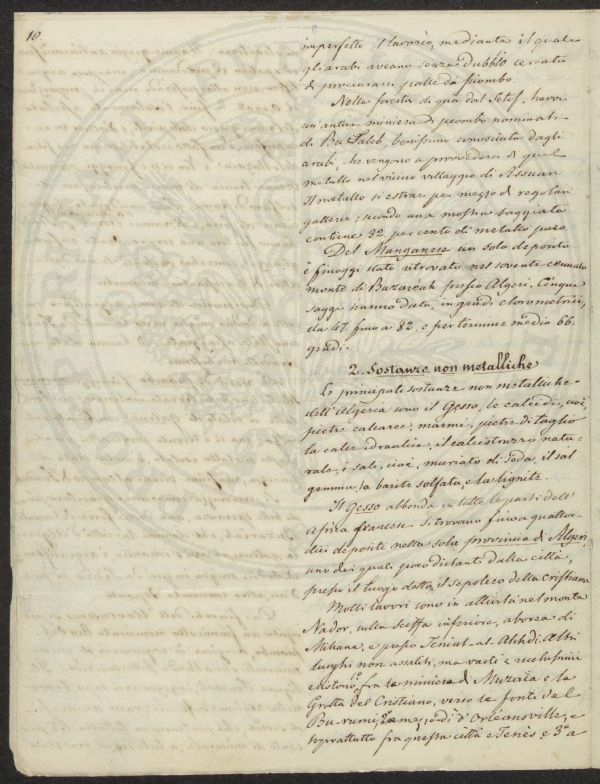 10.
imperfetto il lavorio, mediante il quale
gli arabi aveano senza dubbio cercato
di procurarsi palle da piombo.
Nella foresta di qua dal Setif, havvi
un'antica miniera di piombo nominata
di Bu Taleb, benissimo conosciuta dagli
arabi, che vengono a provvedersi di quel
metallo nel vicino villaggio di Assuan
Il metallo si estrae per mezzo di regolari
gallerie; secondo una mostra saggiata
contiene 32 per cento di metallo puro.
Del Manganese un solo deposito
è finoggi stato ritrovato nel sovente cennato
monte di Buzareah presso Algeri. Cinque
saggi hanno dato, in gradi clorometrici,
da 47 fino a 82, e per termine medio 66
gradi.
2. Sostanze non metalliche
Le principali sostanze non metalliche
dell'Algeria sono il Gesso, le calcidi, cioè,
pietre calcaree, marmi, pietre di taglio
la calce idraulica, il calcistruzzo natu-
rale, i sali, cioè, muriato di Soda, il sal
gemma, la barite solfata, e la lignite.
Il Gesso abbonda in tutte le parti dell'
Africa francese. Si trovano finora quattor-
dici depositi nella sola provincia di Algeri,
uno dei quali poco distante dalla città,
presso il luogo detto, il sepolcro della Cristiana
Molti lavori sono in attività nel monte
Nador, sulla Sciffa inferiore, a borea di
Miliana, e presso Teniat-al-Ahhdi. Altri
luoghi non assaliti, ma vasti e ricchissimi
esistono 1.° fra le miniere di Muzaia e la
Grotta del Cristiano, verso le fonti del
Bu-rumi, 2.° a mezzodì d'Orléansville, e
soprattutto fra questa città e Tenès e 3.° a